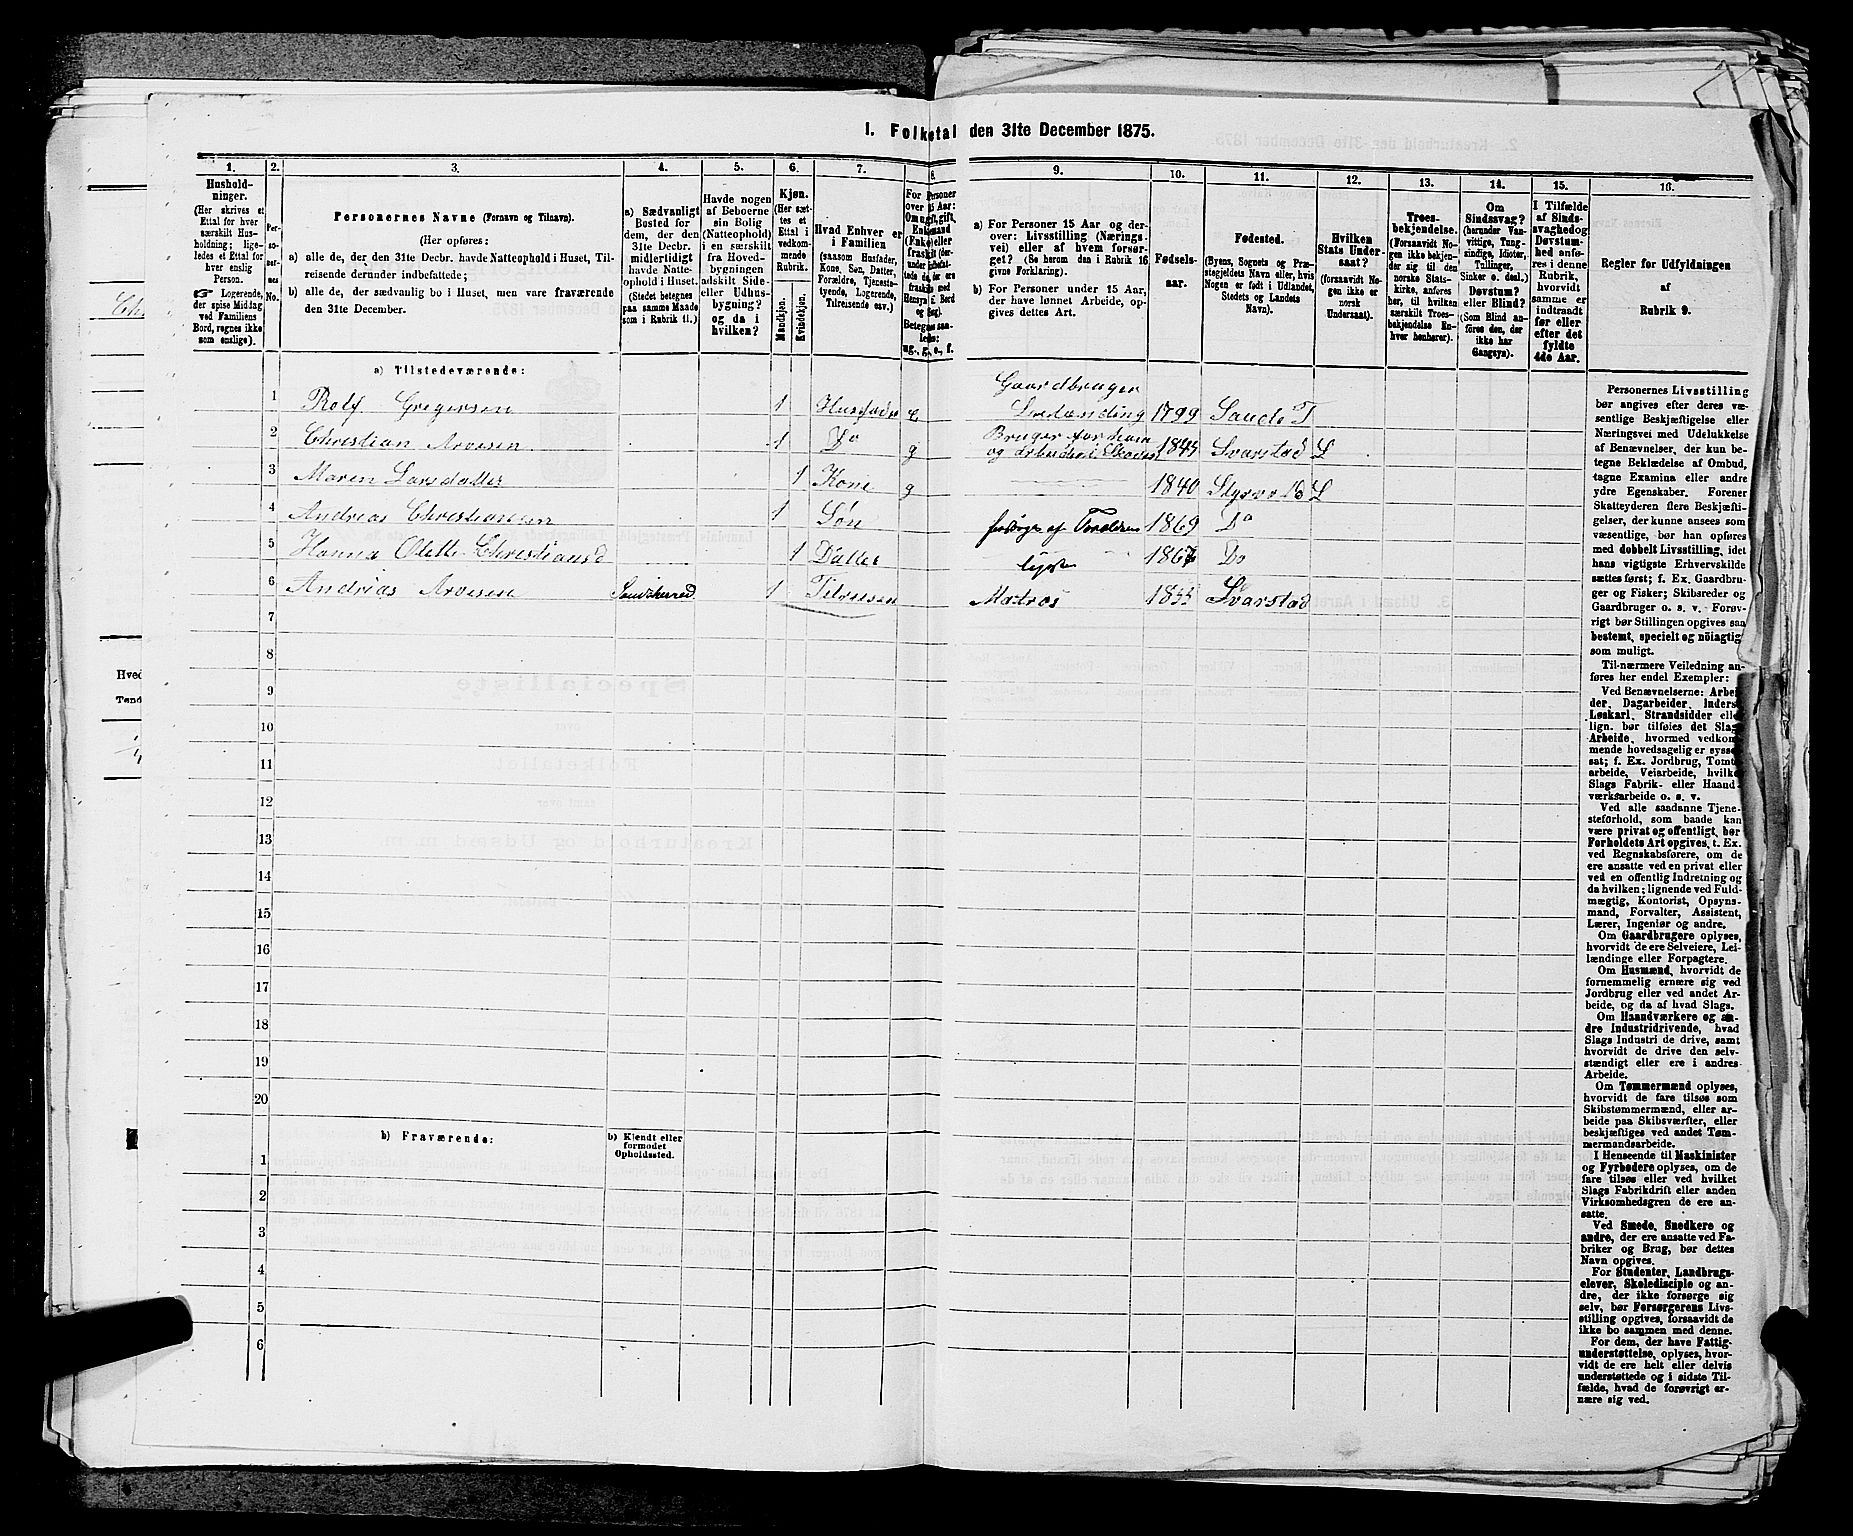 I. Folketal den 31te December 1875.
1. 2. 3. 4. 5. 6. 7. 8. 9. 10. 11. 12. 13. 14. 15. 16.
Hushold-
ninger.
(Her skrives et
Ettal for hver
særskilt Hus-
holdning; lige-
ledes et Ettal for
hver enslig
Person.
☞ Logerende,
der spise Middag
ved Familiens
Bord, regnes ikke
som enslige).
Per-
so-
ner-
nes
No.
Personernes Navne (Fornavn og Tilnavn).
(Her opføres:
a) alle de, der den 31te Decbr. havde Natteophold i Huset, Til-
reisende derunder indbefattede;
b) alle de, der sædvanlig bo i Huset, men vare fraværende
den 31te December.
a) Sædvanligt
Bosted for
dem, der den
31te Decbr.
midlertidigt
havde Natte-
ophold i Huset.
(Stedet betegnes
paa samme Maade
som i Rubrik 11.)
Havde nogen
af Beboerne
sin Bolig
(Natteophold)
i en særskilt
fra Hoved-
bygningen
adskilt Side-
eller Udhus-
bygning?
og da i
hvilken?
Kjøn.
(Her sæt-
tes et
Ettal i
vedkom-
mende
Rubrik.
Mandkjøn.
Kvindekjøn.
Hvad Enhver er
i Familien
(saasom Husfader,
Kone, Søn, Datter,
Forældre, Tjeneste-
tyende, Logerende,
Tilreisende osv.)
For Personer
over 15 Aar:
ug., g., e., f.
a) For Personer 15 Aar og der-
over: Livsstilling (Nærings-
vei) eller af hvem forsør-
get? (Se herom den i Rubrik 16
givne Forklaring).
b) For Personer under 15 Aar,
der have lønnet Arbeide, op-
gives dettes Art.
Fødsels-
aar.
Fødested.
(Byens, Sognets og Præ-
stegjeldets Navn eller, hvis
Nogen er født i Udlandet,
Stedets og Landets
Navn).
Hvilken
Stats Under-
saat?
(forsaavidt No-
gen ikke er
norsk
Undersaat).
Troes-
bekjendelse.
(Forsaavidt No-
gen ikke bekjen-
der sig til den
norske Stats-
kirke, anføres
her, til hvilken
særskilt Troes-
bekjendelse En-
hver henhører).
Om
Sindssvag?
(herunder Van-
vittige, Tung-
sindige, Idioter,
Tullinger,
Sinker o. desl.)
Døvstum?
eller Blind?
(Som Blind an-
føres den, der
ikke har
Gangsyn).
I Tilfælde
af Sinds-
svaghed og
Døvstum-
hed anfø-
res i denne
Rubrik,
hvorvidt
samme er
indtraadt
før eller
efter det
fyldte
4de Aar.
Regler for Udfyldningen
af
Rubrik 9.
a) Tilstedeværende:
Gaardbruger
1 Rolf Gregersen 1 Husfader e 1799 Saude T
Bruger for ham
2 Christian Arvesen 1 Do g og Arbeider i Skoven 1845 Svarstad L
3 Maren Larsdatter 1 Kone g 1840 Styrvo L
4 Andreas Christiansen 1 Søn forsørges af Foreldrene 1869 Do
5 Hanna Odette Christiansd 1 Datter 1867 Do
6 Andreas Arvesen 1 Tilreisen Matros 1855 Svarstad
7
8
9
10
11
12
13
14
15
16
17
18
19
20
b) Fraværende:
b) Kjendt eller
formodet
Opholdssted.
1
2
3
4
5
6
Personernes Livsstilling
bør angives efter deres væ-
sentlige Beskjæftigelse eller
Næringsvei med Udelukkelse
af Benævnelser, der kun be-
tegne Beklædelse af Ombud,
tagne Examina eller andre
ydre Egenskaber. Forener
Skatteyderen flere Beskjæfti-
gelser, der kunne ansees som
væsentlige, bør han opføres
med dobbelt Livsstilling, idet
hans vigtigste Erhvervskilde
sættes først; f. Ex. Gaardbru-
ger og Fisker; Skibsreder og
Gaardbruger o. s. v. Forøv-
rigt bør Stillingen opgives saa
bestemt, specielt og nøiagtig
som muligt.
Til nærmere Veiledning an-
føres her endel Exempler:
Ved Benævnelserne: Arbei-
der, Dagarbeider, Inderst,
Løskarl, Strandsidder eller
lign. bør tilføies det Slags
Arbeide, hvormed vedkom-
mende hovedsagelig er syssel-
sat; f. Ex. Jordbrug, Tomte-
arbeide, Veiarbeide, hvilket
Slags Fabrik- eller Haand-
værksarbeide o. s. v.
Ved alle saadanne Tjene-
steforhold, som baade kan
være privat og offentligt, bør
Forholdets Art opgives, t. Ex.
ved Regnskabsførere, om de
ere ansatte ved en privat eller
ved en offentlig Indretning og
da hvilken; lignende ved Fuld-
mægtig, Kontorist, Opsyns-
mand, Forvalter, Assistent,
Lærer, Ingeniør og andre.
Om Gaardbrugere oplyses,
hvorvidt de ere Selveiere, Lei-
lændinge eller Forpagtere.
Om Husmænd, hvorvidt de
fornemmelig ernære sig ved
Jordbrug eller ved andet Ar-
beide, og da af hvad Slags.
Om Haandværkere og an-
dre Industridrivende, hvad
Slags Industri de drive, samt
hvorvidt de drive den selv-
stændigt eller ere i andres
Arbeide.
Om Tømmermænd oplyses,
hvorvidt de fare tilsøs som
Skibstømmermænd, eller ar-
beide paa Skibsværfter, eller
beskjæftiges ved andet Tøm-
mermandsarbeide.
I Henseende til Maskinister
og Fyrbødere oplyses, om de
fare tilsøs eller ved hvilket
Slags Fabrikdrift eller anden
Virksomhedsgren de ere an-
satte.
Ved Smede, Snedkere og
andre, der ere ansatte ved Fa-
briker og Brug, bør dettes
Navn opgives.
For Studenter, Landbrugs-
elever, Skoledisciple og an-
dre, der ikke forsørge sig
selv, bør Forsørgerens Livs-
stilling opgives, forsaavidt de
ikke bo sammen med denne.
For dem, der have Fattig-
understøttelse, oplyses, hvor-
vidt de ere helt eller delvis
understøttede og i sidste Til-
fælde, hvad de forøvrigt er-
nære sig ved.